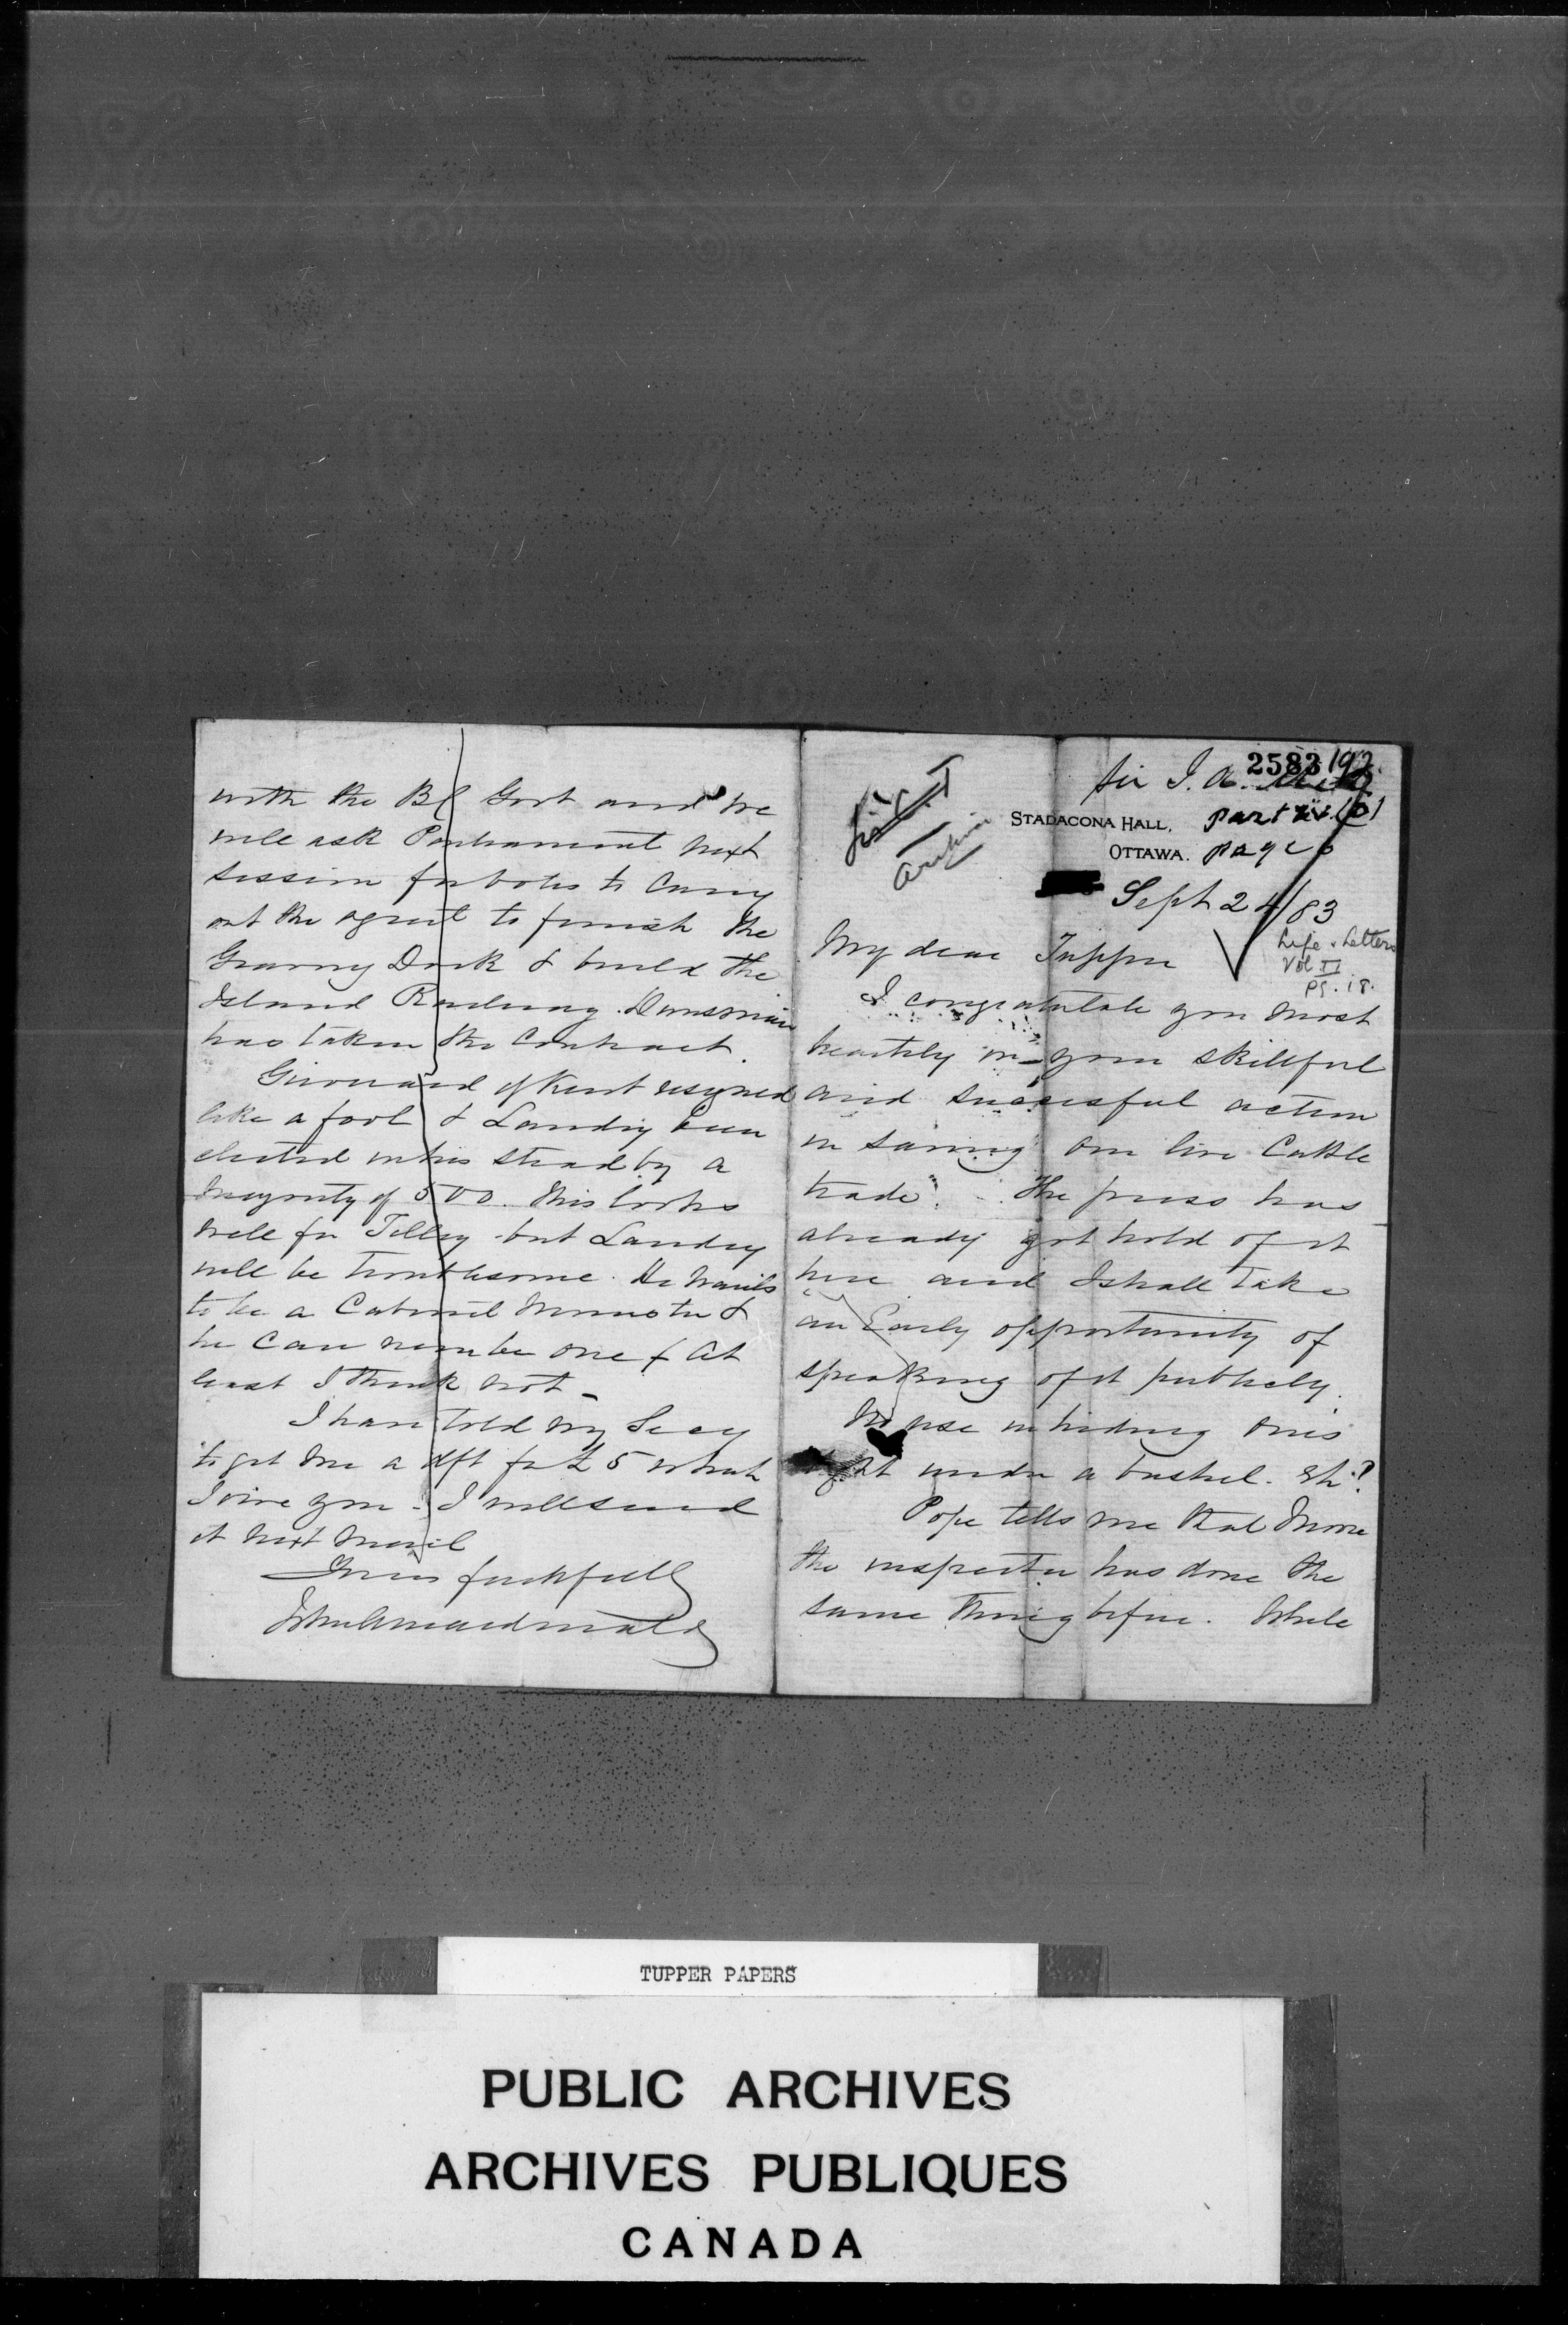 2583
192
Sir J. A.
STADACONA HALL,
OTTAWA.
part
page
Sept 24/83
Life & Letters
Vol II
pg. 18.
My dear Tupper
I congratulate you most
heartily on your skillful
and successful action
in saving our live Cattle
trade. The press has
already got hold of it
here and I shall take
an Early opportunity of
speaking of it publicly.
No use in hiding ones
light under a bushel. Eh?
Pope tells me that
the inspector has done the
same thing before. While
with the BC Govt and we
will ask Parliament next
session for votes to Carry
out the agrmt to finish the
Graving Dock & build the
Island Railway. Dunsmuir
has taken the Contract.
Girouard of Kent resigned
like a fool & Landry been
elected in his stead by a
majority of 500. This looks
well for Tilley but Landry
will be troublesome. He wants
to be a Cabinet Minister &
he can never be one & At
least I think not -
I have told my Secy
to get me a dft for £5 which
I owe you - I will send
it next mail
Yours faithfully
John A Macdonald
TUPPER PAPERS
PUBLIC ARCHIVES
ARCHIVES PUBLIQUES
CANADA